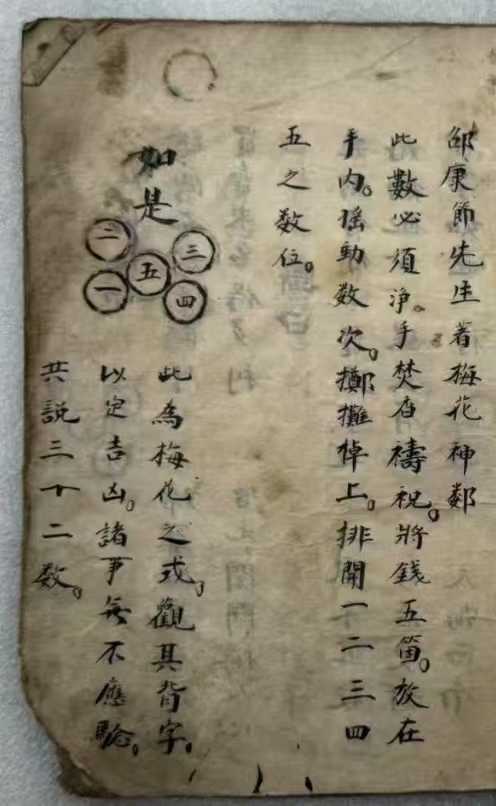 邵康節先生著梅花神数
此數必須淨手焚香禱祝。將錢五箇。放在
手内。搖動数次。擲攤棹上。排開一二三四
五之数位。
如是
二 三
五
一 四
此為梅花之式。觀其背字。
以定吉凶。諸事無不應驗。
共説三十二数。